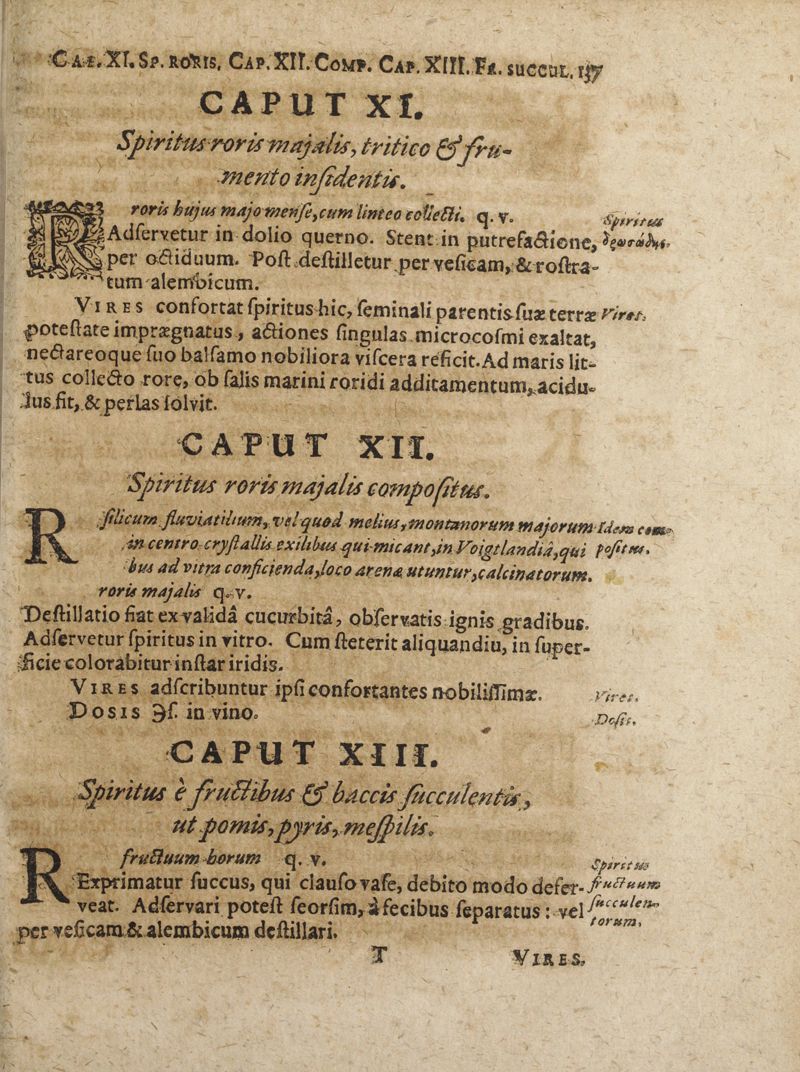 CAP. XI. SP. RORIS, CAP. XII. COMP. CAP. XIII. FR. SUCCUL.
CAPUT XI.
Spiritus roris majalis, tritico & fru-
mento insidentis.
R roris hujus majo mense, cum linteo collecti. q. v.
Spiritus
Adservetur in dolio querno. Stent in putrefactione,
per octiduum. Post destilletur per vesicam, & rostra-
tum alembicum.
VIRES confortat spiritus hic, seminali parentis suæ terræ
Vires,
potestate imprægnatus, actiones singulas microcosmi exaltat,
nectareoque suo balsamo nobiliora viscera reficit. Ad maris lit-
tus collecto rore, ob salis marini roridi additamentum, acidu-
lus fit, & perlas solvit.
CAPUT XII.
Spiritus roris majalis compositus.
R silicum fluviatilium, vel quod melius, montanorum majorum
Idem com-
in centro crystallis exilibus qui micant, in Voigtlandiâ, qui
positus.
bus ad vitra conficienda, loco arenæ utuntur, calcinatorum.
roris majalis q. v.
Destillatio fiat ex validâ cucurbitâ, observatis ignis gradibus.
Adservetur spiritus in vitro. Cum steterit aliquandiu, in super-
ficie colorabitur instar iridis.
VIRES adscribuntur ipsi confortantes nobilissimæ.
Vires.
DOSIS ℈ſ. in vino.
Dosis.
CAPUT XIII.
Spiritus è fructibus & baccis succulentis,
ut pomis, pyris, mespilis.
R fructuum horum q. v.
Spiritus
Exprimatur succus, qui clauso vase, debito modo defer-
fructuum
veat. Adservari potest seorsim, à fecibus separatus: vel
succulen-
per vesicam & alembicum destillari.
torum,
T VIRES,